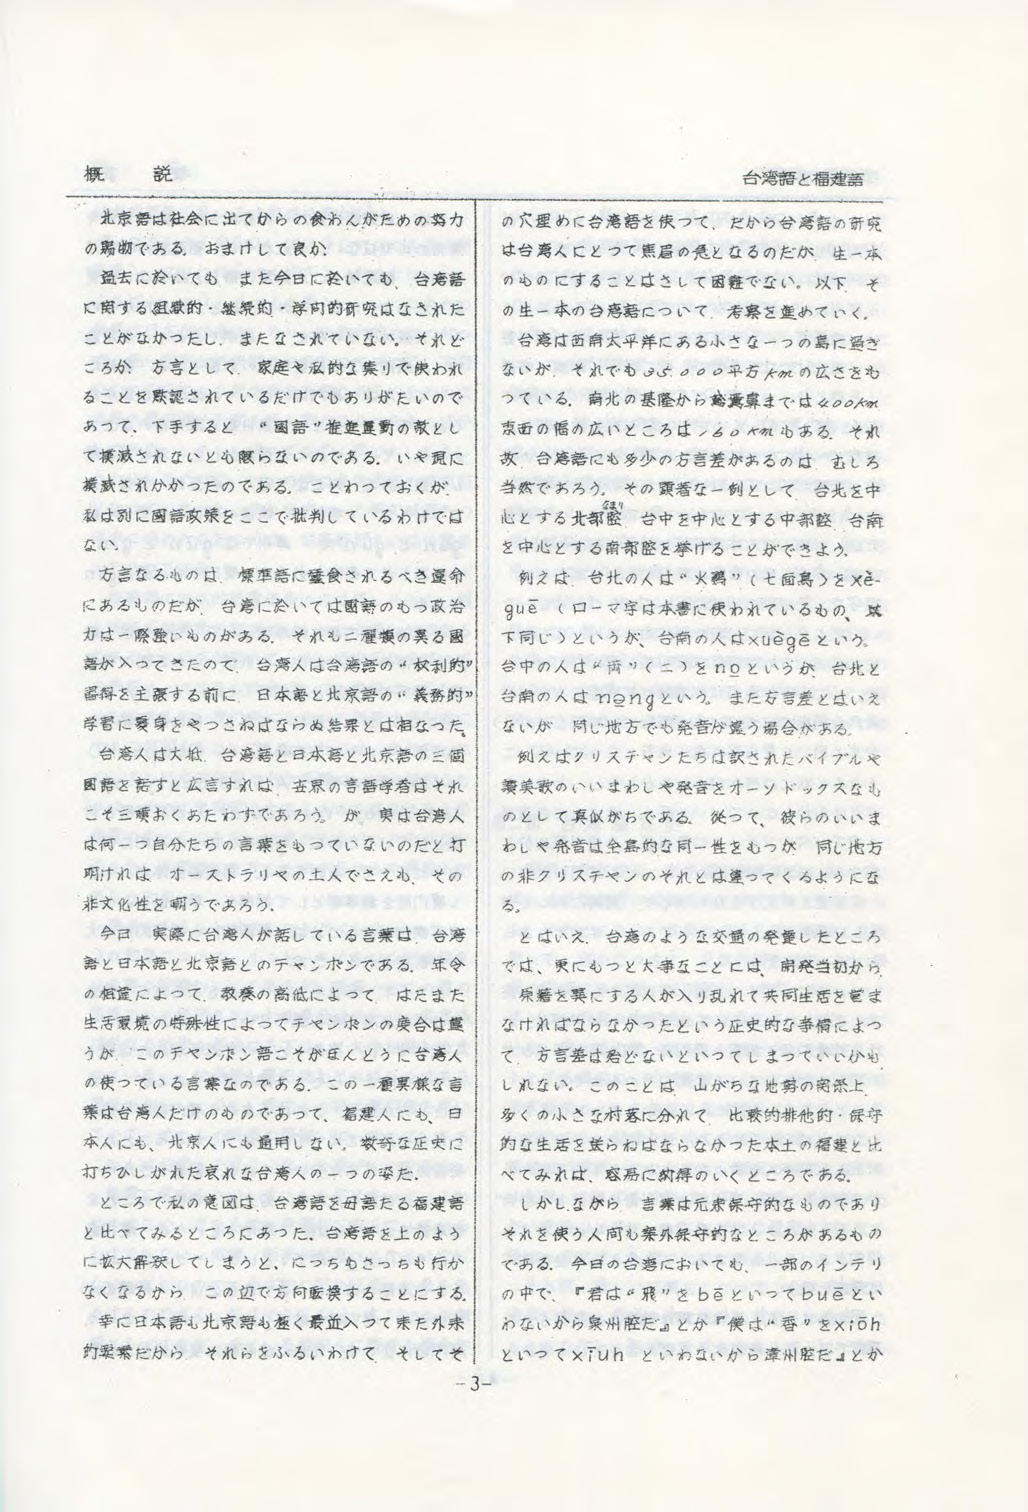 概　　説
台湾語と福建語
北京語は社会に出てからの食わんがための努力
の賜物である。おまけして良か。
過去に於いても、また今日に於いても、台湾語
に関する組織的・継続的・学問的研究はなされた
ことがなかったし、またなされていない。それど
ころか、方言として、家庭や私的な集りで使われ
ることを黙認されているだけでもありがたいので
あって、下手すると、“國語”推進運動の敵とし
て撲滅されないとも限らないのである。いや現に
撲滅されかかったのである。ことわっておくが、
私は別に國語政策をここで批判しているわけでは
ない。
方言なるものは、標準語に蚕食されるべき運命
にあるものだが、台湾に於いては國語のもつ政治
力は一際強いものがある。それも二種類の異る國
語が入ってきたので、台湾人は台湾語の“权利的”
習得を主張する前に、日本語と北京語の“義務的”
学習に憂身をやつさねばならぬ結果とは相なった。
台湾人は大抵、台湾語と日本語と北京語の三個
國語を話すと広言すれば、世界の言語学者はそれ
こそ三嘆おくあたわずであろう。が、実は台湾人
は何一つ自分たちの言葉をもっていないのだと打
明ければ、オーストラリヤの土人でさえも、その
非文化性を嘲うであろう。
今日、実際に台湾人が話している言葉は、台湾
語と日本語と北京語とのチャンポンである。年令
の相違によって、教養の高低によって、はたまた
生活環境の特殊性によってチャンポンの度合は違
うが、このチャンポン語こそがほんとうに台湾人
の使っている言葉なのである。この一種異様な言
葉は台湾人だけのものであって、福建人にも、日
本人にも、北京人にも通用しない。数奇な歴史に
打ちひしがれた哀れな台湾人の一つの姿だ。
ところで私の意図は、台湾語を母語たる福建語
と比べてみるところにあった。台湾語を上のよう
に拡大解釈してしまうと、にっちもさっちも行か
なくなるから、この辺で方向転換することにする。
幸に日本語も北京語も極く最近入って来た外来
的要素だから、それらをふるいわけて、そしてそ
の穴埋めに台湾語を使って、だから台湾語の研究
は台湾人にとって焦眉の急となるのだが、生一本
のものにすることはさして困難でない。以下、そ
の生一本の台湾語について、考察を進めていく。
台湾は西南太平洋にある小さな一つの島に過ぎ
ないが、それでも35,000平方kmの広さをも
っている。南北の基隆から鵞鑾鼻までは400km
東西の幅の広いところは160kmもある。それ
故、台湾語にも多少の方言差があるのは、むしろ
当然であろう。その顕著な一例として、台北を中
心とする北部腔（なまり）、台中を中心とする中部腔、台南
を中心とする南部腔を挙げることができよう。
例えば、台北の人は“火鶏”（七面鳥）をxè-
guē（ローマ字は本書に使われているもの、以
下同じ）というが、台南の人はxuègēという。
台中の人は“両”（二）をno̱というが、台北と
台南の人はno̱ngという。また方言差とはいえ
ないが、同じ地方でも発音が違う場合がある。
例えばクリスチャンたちは訳されたバイブルや
讃美歌のいいまわしや発音をオーソドックスなも
のとして真似がちである。従って、彼らのいいま
わしや発音は全島的な同一性をもつが、同じ地方
の非クリスチャンのそれとは違ってくるようにな
る。
とはいえ、台湾のような交通の発達したところ
では、更にもっと大事なことには、開発当初から、
原籍を異にする人が入り乱れて共同生活を営ま
なければならなかったという歴史的な事情によっ
て、方言差は殆どないといってしまっていいかも
しれない。このことは、山がちな地勢の関係上、
多くの小さな村落に分れて、比較的排他的・保守
的な生活を送らねばならなかった本土の福建と比
べてみれば、容易に納得のいくところである。
しかしながら、言葉は元来保守的なものであり
それを使う人間も案外保守的なところがあるもの
である。今日の台湾においても、一部のインテリ
の中で、『君は“飛”をbēといってbuēとい
わないから泉州腔だ』とか『僕は“香”をxīoh
といってxīuh といわないから漳州腔だ』とか
-3-